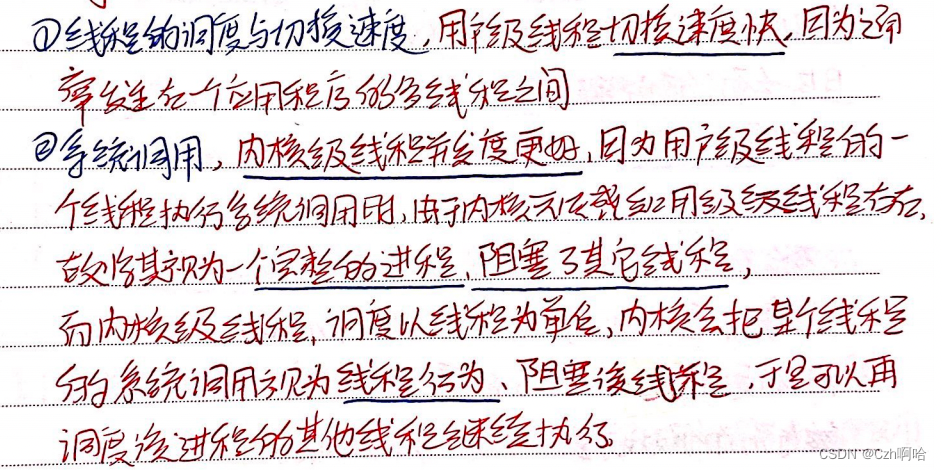 ①线程的调度与切换速度,用户级线程切换速度快,因为通
常发生在一个应用程序的多线程之间
②系统调用,内核级线程并发度更好,因为用户级线程的一
个线程执行系统调用时,由于内核无法感知用户级线程存在,
故将其视为一个完整的进程,阻塞了其它线程,
而内核级线程,调度以线程为单位,内核会把某个线程
的系统调用视为线程行为、阻塞该线程,于是可以再
调度该进程的其他线程继续执行。
CSDN @Czh啊哈